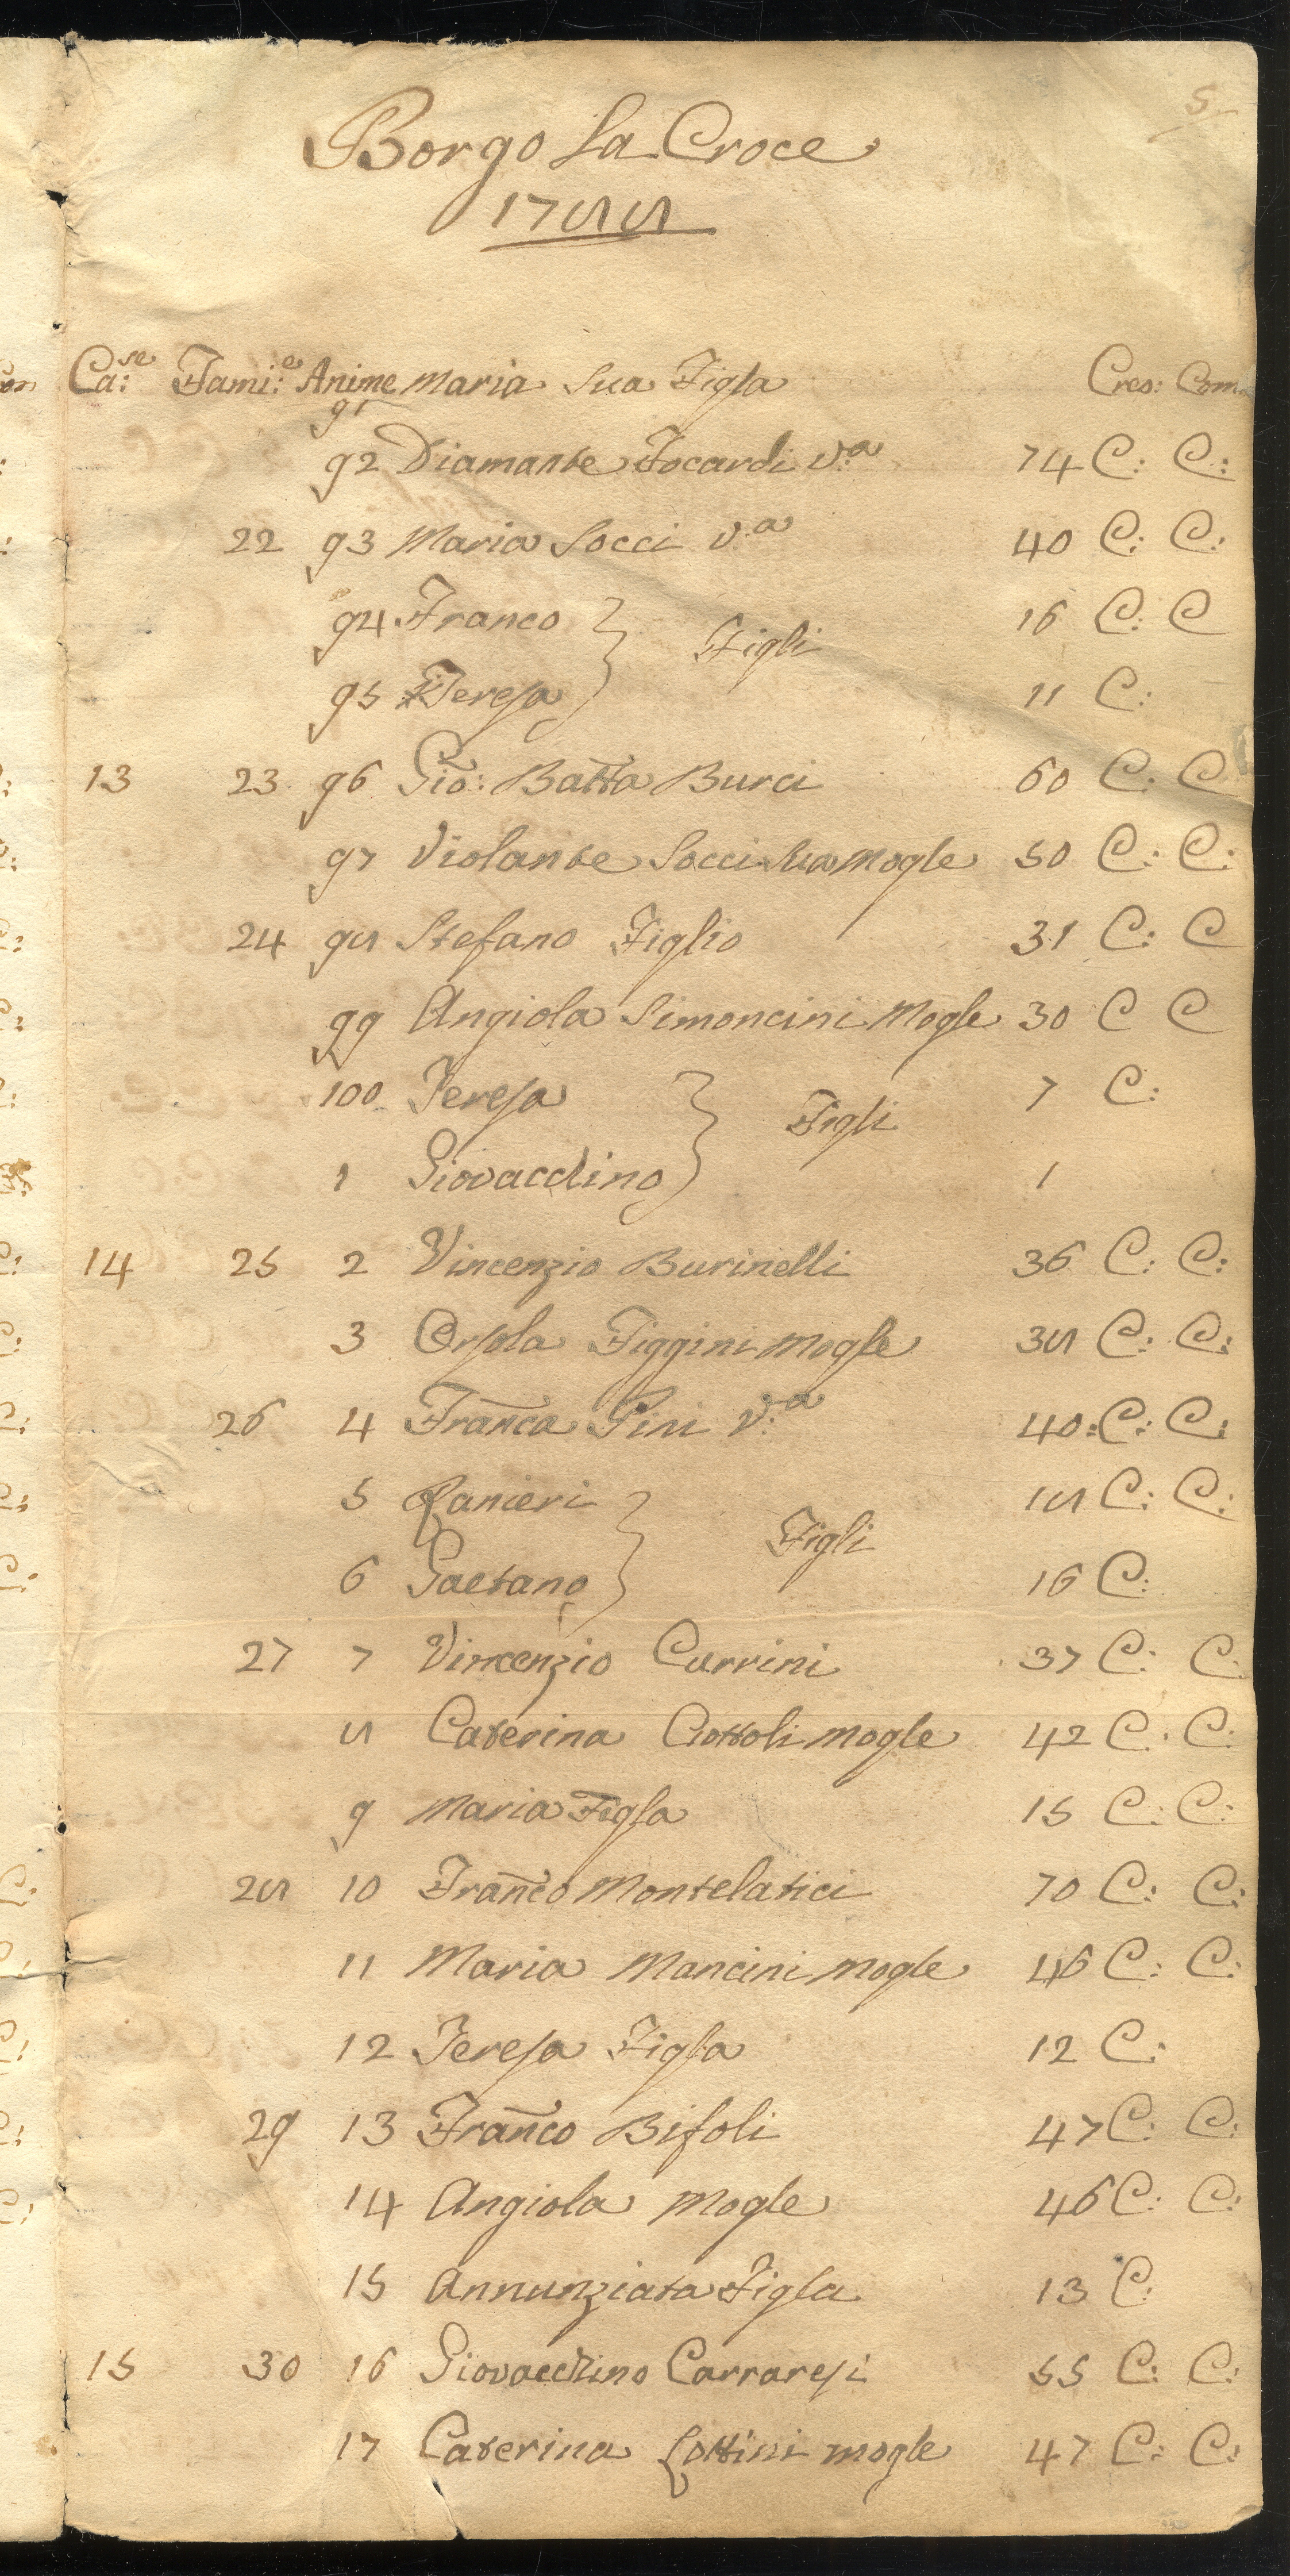 5
Borgo la Croce
1788
Ca:se Fami:e Anime Maria sua Figla Cres: Com
91
92 Diamante Focardi v.a 74 C: C:
22 93 Maria Socci v.a 40 C: C:
94 Franco 16 C: C
Figli
95 Teresa 11 C:
13 23 96 Gio: Batta Burci 60 C: C
97 Violante Socci sua Mogle 50 C: C:
24 98 Stefano Figlio 31 C: C
99 Angiola Simoncini Mogle 30 C C
100 Teresa 7 C:
Figli
1 Giovacchino 1
14 25 2 Vincenzio Burinelli 36 C: C:
3 Orsola Figgini mogle 38 C: C:
26 4 Franca Pini v.a 40: C: C:
5 Ranieri 18 C: C:
Figli
6 Gaetano 16 C:
27 7 Vincenzio Currini 37 C: C:
8 Caterina Ciottoli mogle 42 C. C:
9 Maria Figla 15 C: C:
28 10 Franco Montelatici 70 C: C:
11 Maria Mancini mogle 46 C: C:
12 Teresa Figla 12 C:
29 13 Franco Bifoli 47 C: C:
14 Angiola Mogle 46 C: C:
15 Annunziata Figla 13 C:
15 30 16 Giovacchino Carraresi 55 C: C:
17 Caterina Lottini mogle 47 C: C: